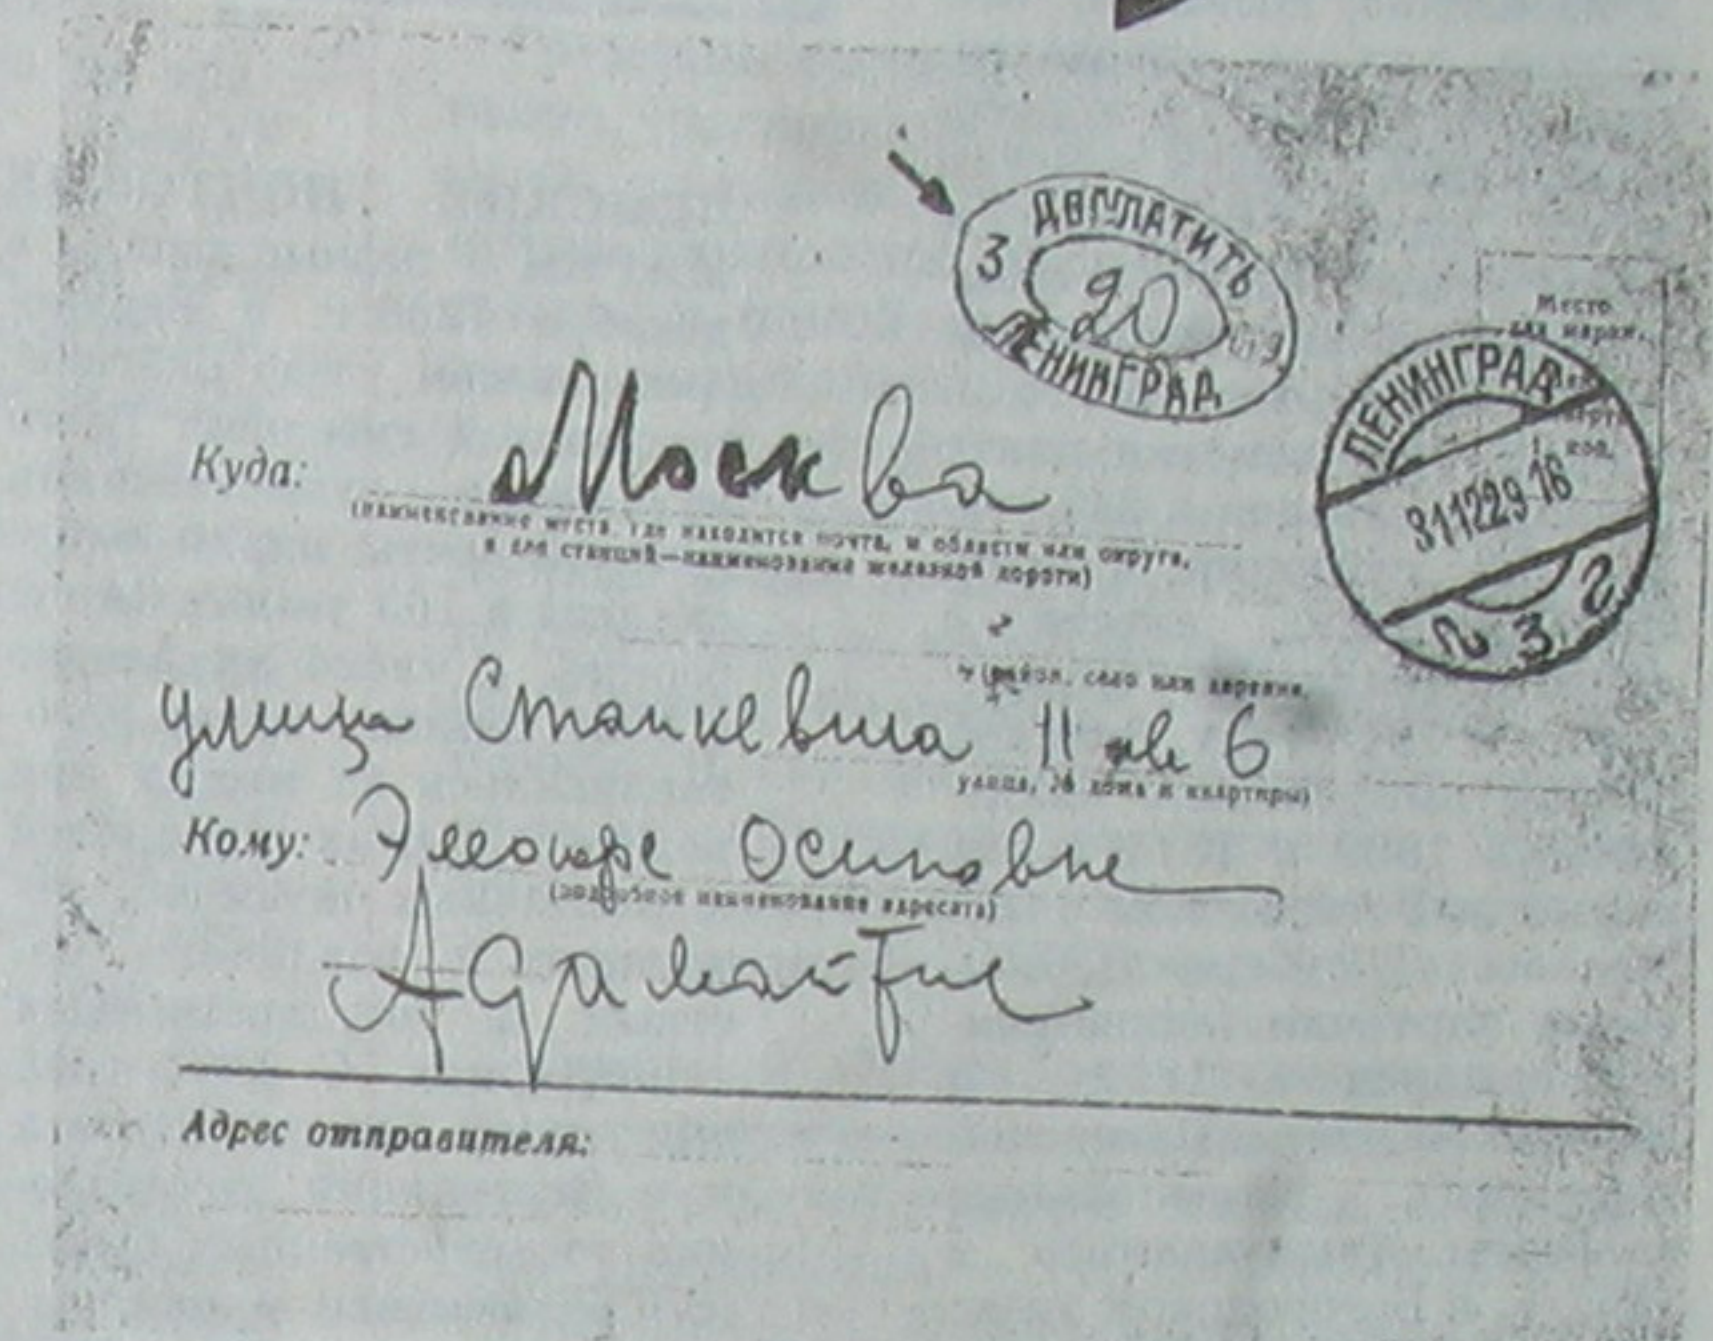 ДОПЛАТИТЬ
3 20
ЛЕНИНГРАД
Место
для марки.
ЛЕНИНГРАД
311229 16
Куда: Москва
(наименование места, где находится почта, и области или округа,
а для станций—наименование железной дороги)
(район, село или деревня,
улица Станкевича 11 кв 6
улица, № дома и квартиры)
Кому: Элеоноре Осиповне
(подробное наименование адресата)
Адрес отправителя: